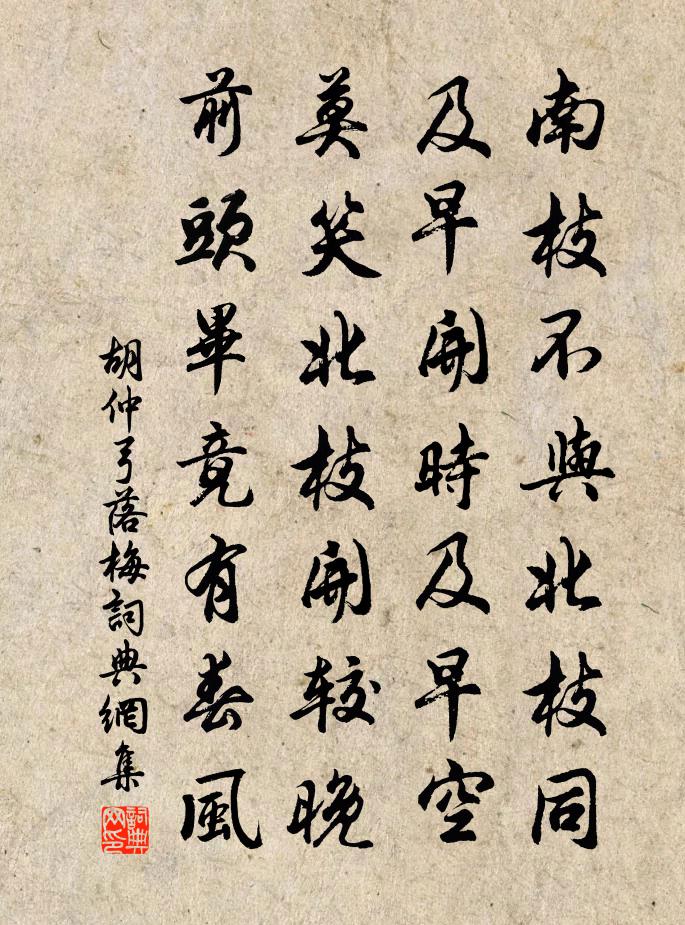 南枝不與北枝同
及早開時及早空
莫笑北枝開較晚
前頭畢竟有春風
胡仲弓落梅詞典網集
詞典網印